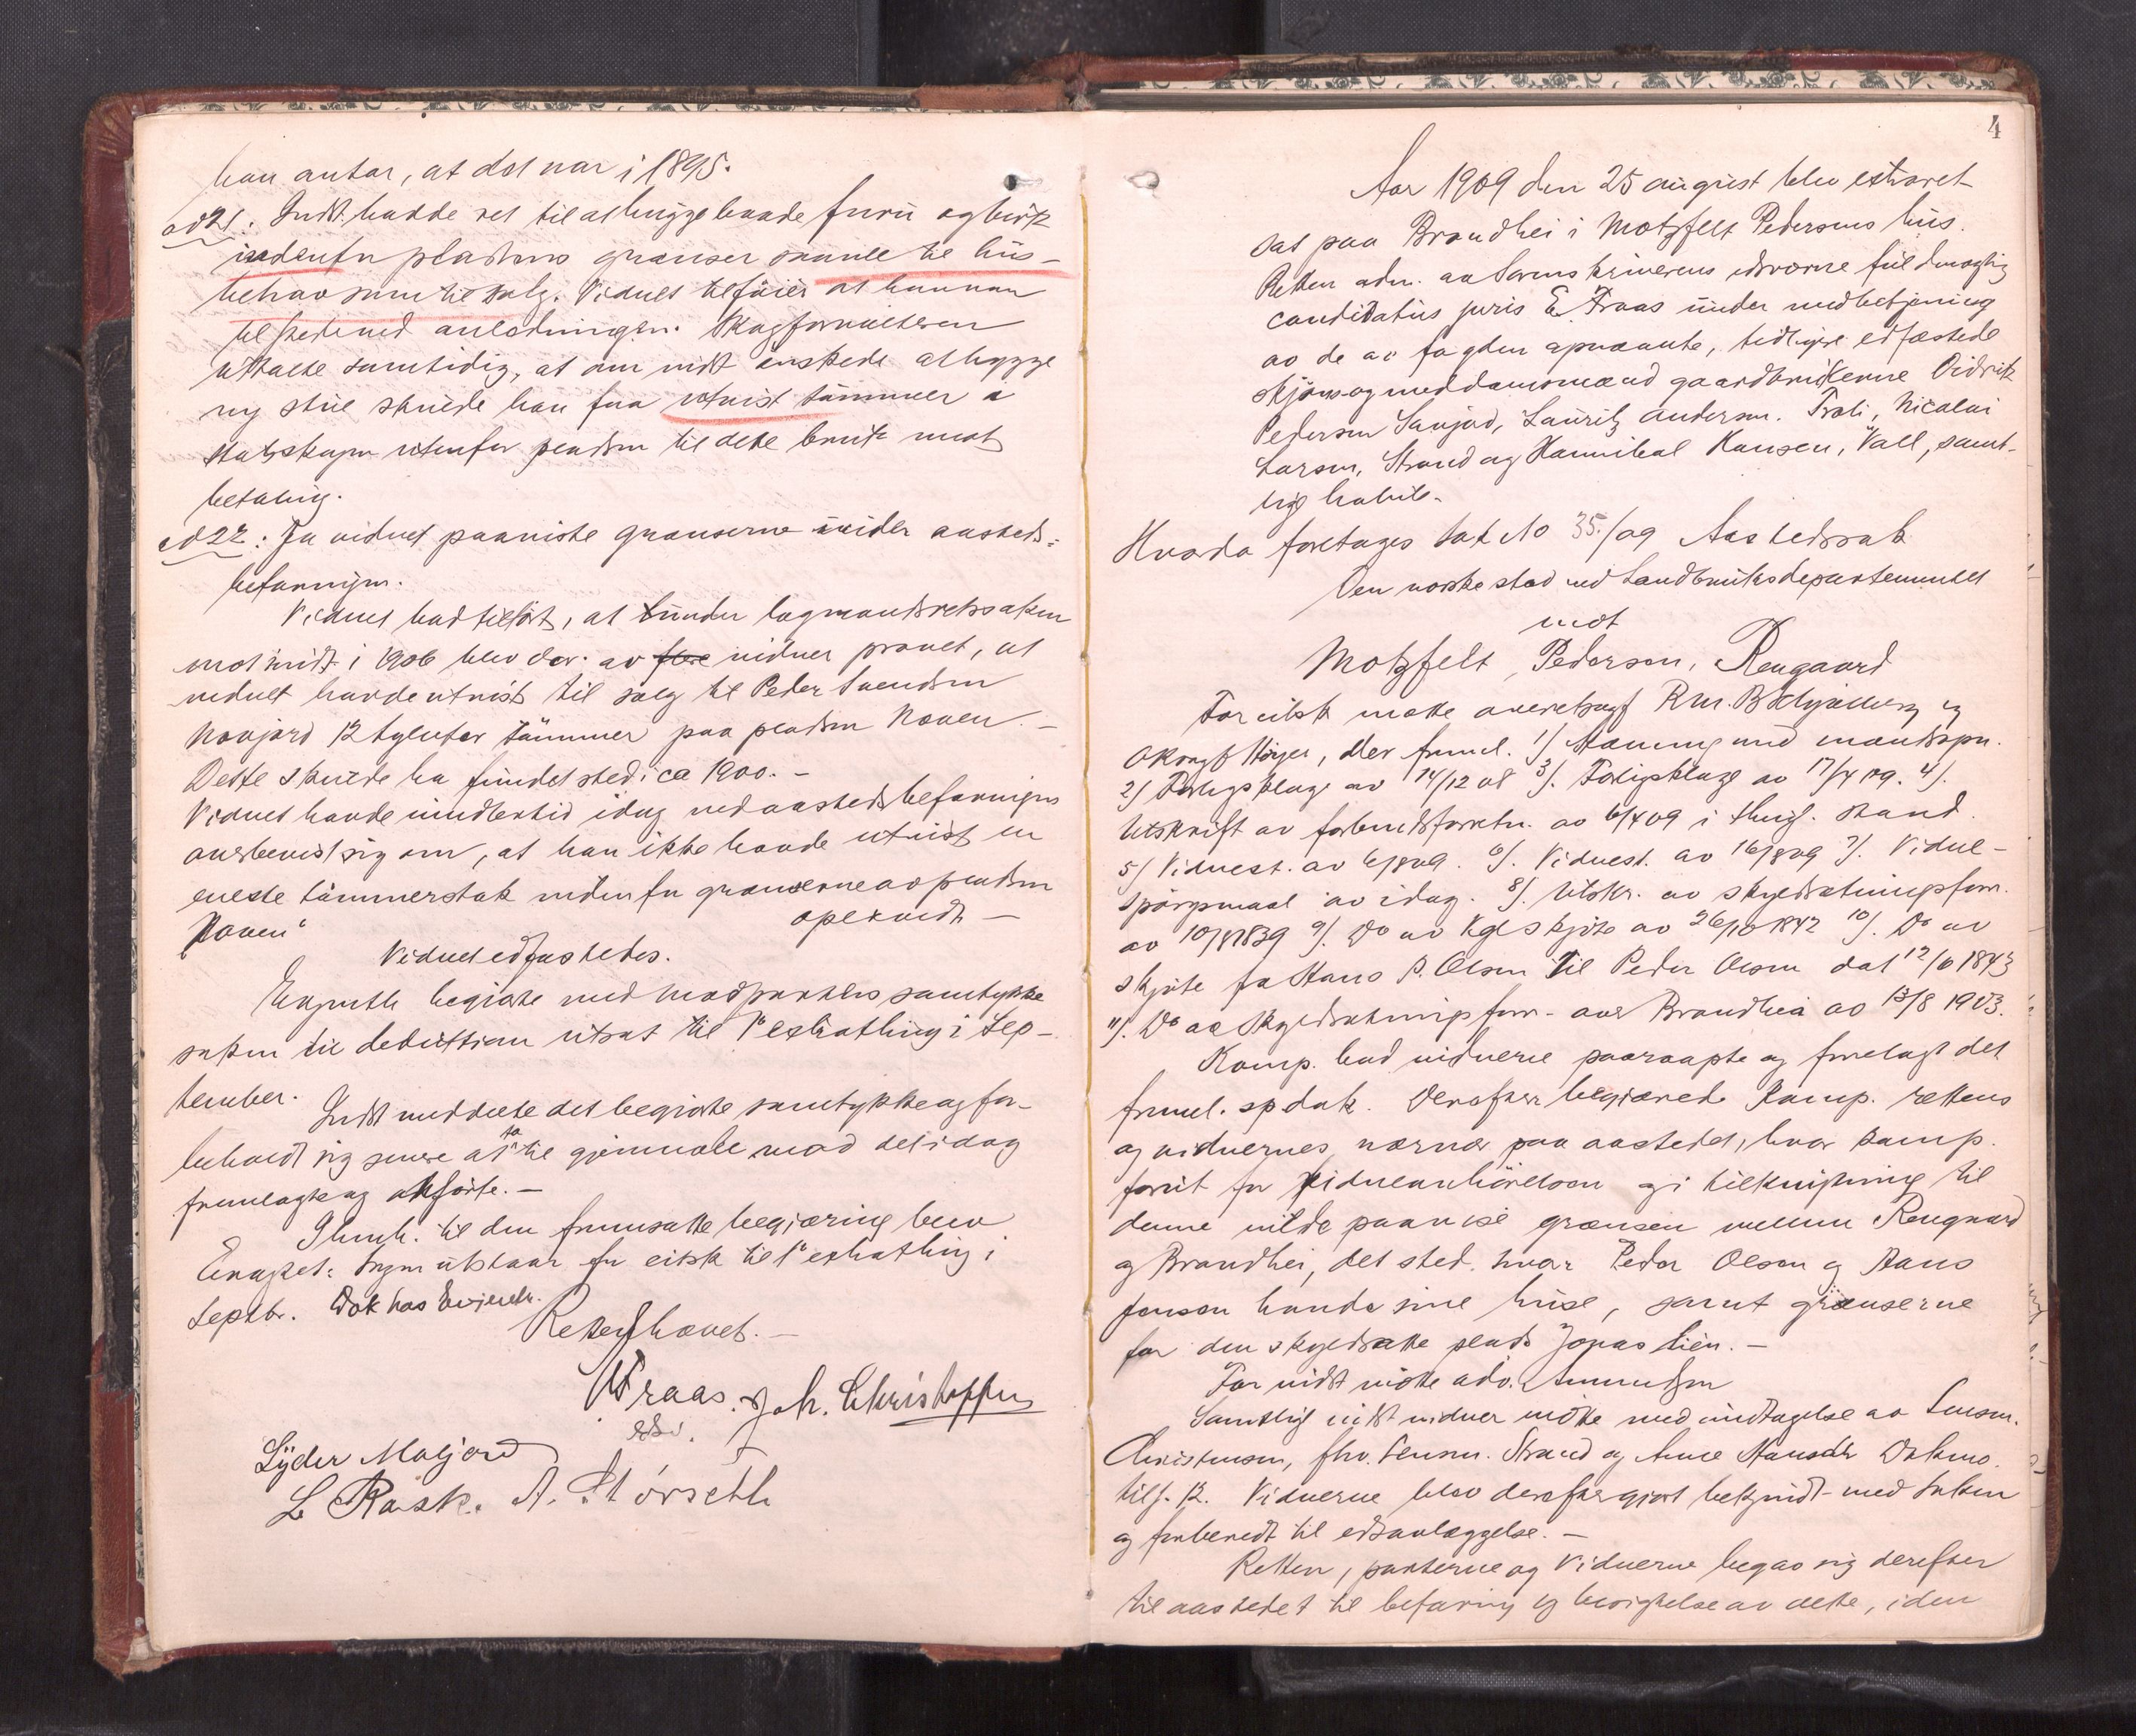 han antar, at det var i 1895.
ad 21. Indst. hadde ret til at hugge baade furu og birk
indenfor pladsens grænser saavel til hus-
behov som til salg. Vidnet tilføier at han var
tilstede ved anledningen. Skogforvalteren
uttalte samtidig, at om indst ønskede at bygge
ny stue skulde han faa utvist tømmer i
statsskogen utenfor pladsen til dette bruk mot
betaling.
ad 22: Ja vidnet paaviste grænserne under aasteds-
befaringen.
Vidnet bad tilført, at under lagmandsretssaken
mot indst i 1906 blev der av flere vidner provet, at
vidnet havde utvist til salg til Peder Svendsen
Navjord 12 tylvter tømmer paa pladsen Noven. -
Dette skulde ha fundet sted i ca 1900. -
Vidnet havde imidlertid idag ved aastedsbefaringen
overbevist sig om, at han ikke havde utvist en
eneste tømmerstok indenfor grænserne av pladsen
"Noven" oplæst
Vidnet edfæstedes.
Engseth begjærte med modpartens samtykke
saken til deduktion utsat til 1° extrathing i Sep-
tember.
Indst meddelte det begjærte samtykke og for-
beholdt sig senere at ta til gjenmæle mod det idag
fremlagte og anførte. -
I henh. til den fremsatte begjæring blev
Eragtet: Sagen utstaar for eitsk til 1° extrathing i
Septbr. Dok hos Engseth.
Retten hævet. -
Fraas. Joh. Christoffersen
edsv.
Lyder Moljord
L. Rask. A. Størseth
4
Aar 1909 den 25 august blev extraret
sat paa Brandhei i Motzfelt Pedersens hus.
Retten adm. av Sorenskriverens edsvorne fuldmægtig
candidatus juris E. Fraas under medbetjening
av de av fogden opnævnte, tidligere edfæstede
skjøns og meddomsmænd gaardbrukerne Didrik
Pedersen Saujord, Lauritz Andersen. Troli, Nicolai
Larsen, Strand og Hannibal Hansen, Vall, samt-
lige habile.
Hvorda foretages Sak No 35/09 Aastedssak
Den norske stad ved Landbruksdepartementet
mot
Motzfelt Pedersen, Rengaard
For citsk møtte overretssagf. Rm. B. Schjelderup og
O.R.sagf. Höyer, der freml. 1) Stævning med mandsopn.
2) Forligsklage av 14/12 08 3). Forligsklage av 17/4 09. 4).
Utskrift av forbudsforretn. av 6/4 09 i thingl. stand.
5) Vidnest. av 6/8 09. 6). Vidnest. av 16/8 09 7). Vidne-
spørgsmaal av idag. 8). Utskr. av skyldsætningsforr.
av 10/8 1839 9). Do av Kgl skjöte av 26/10 1842 10). Do av
skjöte fra Hans P. Olsen til Peder Olsen dat 12/6 1843
11). Do av Skyldsætningsforr. over Brandhei av 13/8 1903.
Komp. bad vidnerne paaraapte og forelagt det
freml. sp.dok. Derefter begjærede Komp. rettens
og vidnernes nærvær paa aastedet, hvor komp.
forut for vidneanhörelsen og i tilknytning til
denne vilde paavise grænsen mellem Rengaard
og Brandhei, det sted, hvor Peder Olsen og Hans
Jonson havde sine huse, samt grænserne
for den skyldsatte plads Jonaslien. -
For indst møtte adv. Amundsen
Samtlige indst vidner møtte med undtagelse av Lensm.
Christensen, fhv. lensm. Strand og Anne Hansdtr Dokmo.
tils. 12. Vidnerne blev derefter gjort bekjendt med saken
og forberedt til edsavlæggelse. -
Retten, parterne og vidnerne begav sig derefter
til aastedet til befaring og besigtelse av dette, i den